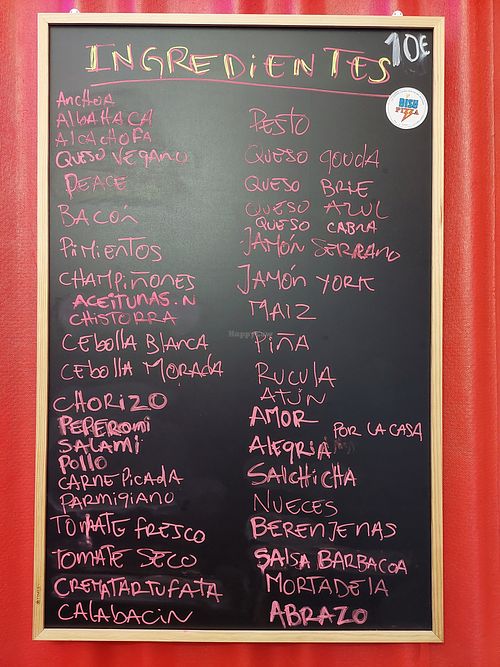 INGREDIENTES
10€
DISU
PIZZA
ANCHOA
ALBAHACA
ALCACHOFA
QUESO VEGANO
PEACE
BACÓN
PIMIENTOS
CHAMPIÑONES
ACEITUNAS.N
CHISTORRA
CEBOLLA BLANCA
CEBOLLA MORADA
CHORIZO
PEPERONI
SALAMI
POLLO
CARNE PICADA
PARMIGIANO
TOMATE FRESCO
TOMATE SECO
CREMATARTUFATA
CALABACIN
PESTO
QUESO GOUDA
QUESO BRIE
QUESO AZUL
QUESO CABRA
JAMÓN SERRANO
JAMÓN YORK
MAIZ
PIÑA
RUCULA
ATÚN
AMOR
ALEGRIA
POR LA CASA
SALCHICHA
NUECES
BERENJENAS
SALSA BARBACOA
MORTADELA
ABRAZO
HappyCow